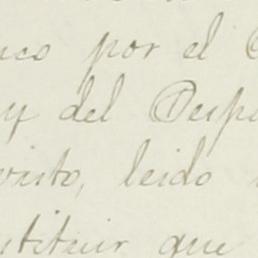 nco por el
y del Despa
visto, leido
stituir que